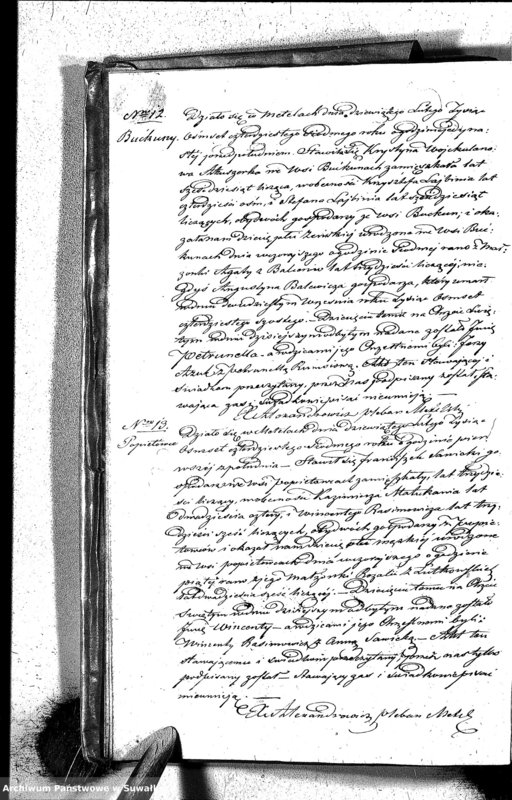 Nro 12.
Buckuny.
Działo się w Metelach dnia dziewiątego Lutego Tysiąc
Osmset czterdziestego siódmego roku o godzinie jedyna-
stej przed południem. Stawiła się Krystyna Wojciulano-
wa Akuszerka we wsi Buckunach zamieszkała lat
sześćdziesiąt licząca, w obecności Krzysztofa
czterdzieści osm i Stefana lat sześćdziesiąt
liczących, obydwóch gospodarzy ze wsi Buckun; i oka-
zała nam dziecię płci żeńskiej urodzone we wsi Buc-
kunach dnia wczorajszego o godzinie siódmej rano z Mał-
żonki Agaty z lat trzydzieści liczącej, nie-
gdyś Augustyna Balewicza gospodarza, który umarł
w dniu dwudziestym Września roku tysiąc osmset
czterdziestego szóstego. — Dziecięciu temu na Chrzcie Świę-
tym w dniu dzisiejszym odbytym nadane zostało Imię
Petrunella — a rodzicami jego Chrzestnemi byli: Jerzy
z Petronellą. Akt ten Stawającej i
świadkom przeczytany, przez Nas podpisany został, Sta-
wająca zaś i świadkowie pisać nieumieją.
X. Alexandrowicz Pleban Metel.
Nro 13.
Popiełowce
Działo się w Metelach dnia dziewiątego Lutego Tysiąc
Osmset czterdziestego siódmego roku o godzinie pier-
wszej z południa — Stawił się Franciszek Sawicki go-
spodarz we wsi zamieszkały, lat trzydzie-
ści liczący, w obecności Kazimierza Matukania lat
dwadzieścia cztery, i Wincentego Rasimowicza lat trzy-
dzieści sześć liczących, obydwóch gospodarzy z
i okazał nam dziecię płci męzkiej urodzone
we wsi dnia wczorajszego o godzinie
piątej rano z jego Małżonki Rozalii z
dwadzieścia sześć liczącej. — Dziecięciu temu na Chrzcie
Świętym w dniu dzisiejszym odbytym nadano zostało
Imię Wincenty — a rodzicami jego Chrzestnemi byli:
Wincenty Rasimowicz z Anną Sawicką. — Akt ten
stawającemu i świadkom przeczytany, przez nas tylko
podpisany został — stawający zaś i świadkowie pisać
nieumieją. —
X. Alexandrowicz Pleban Metel
Archiwum Państwowe w Suwałk